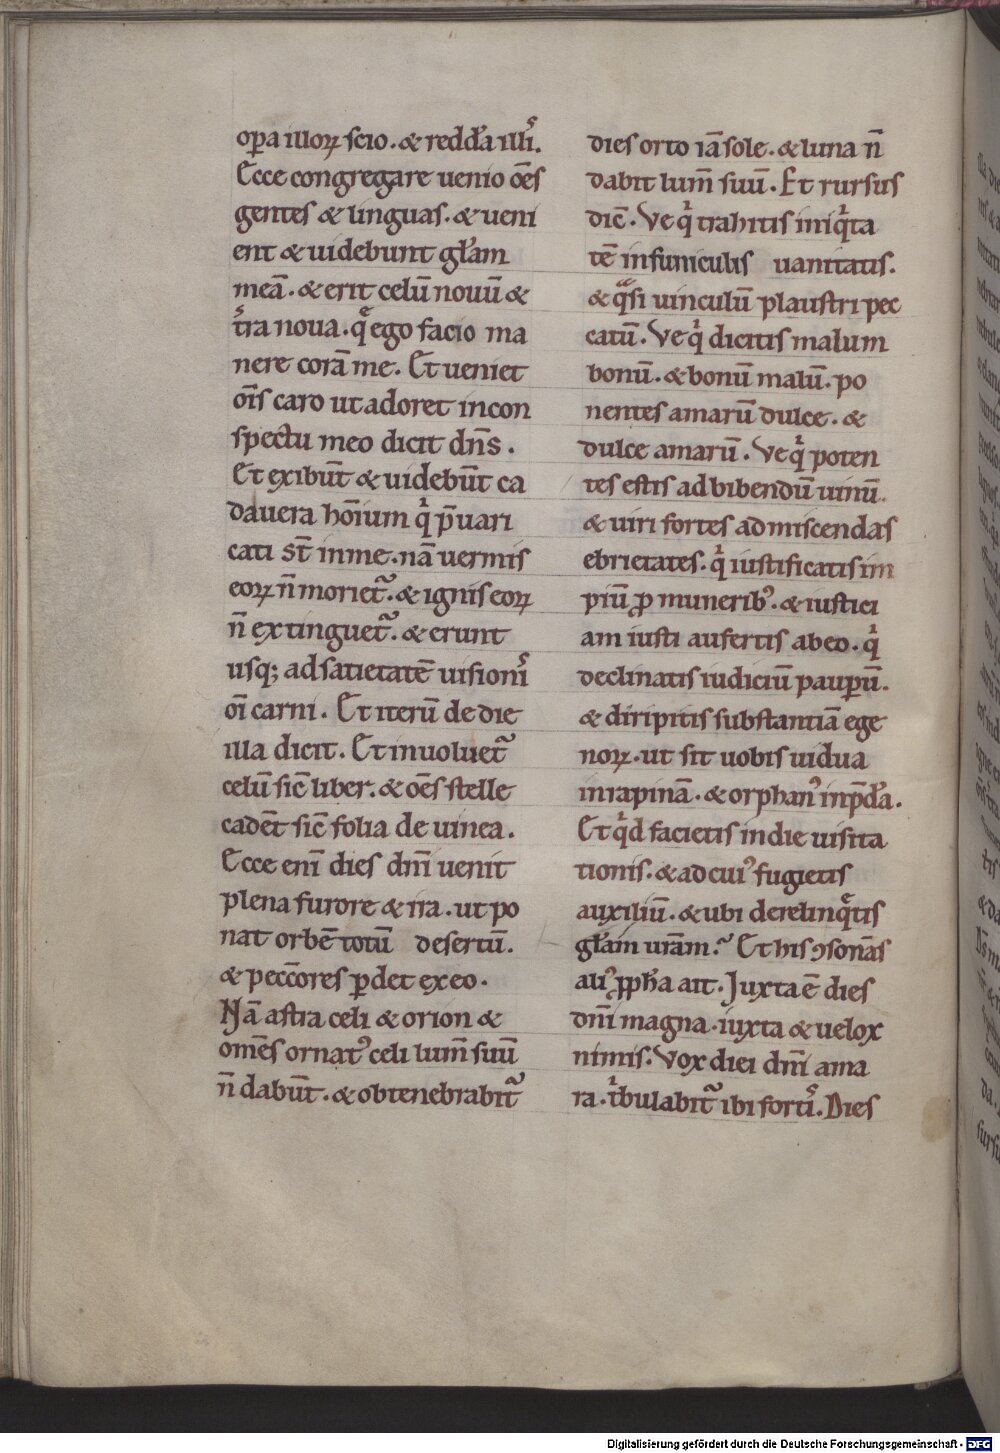 oꝑa illoꝝ scio. & reddā illis.
Ecce congregare uenio oēs
gentes & linguas. & ueni
ent & uidebunt gl̄am
meā. & erit celū nouū &
t̄ra noua. q̄ ego facio ma
nere corā me. Et ueniet
oīs caro ut adoret in con
spectu meo dicit dn̄s.
Et exibūt & uidebūt ca
dauera hoīum qͥ p̄uari
cati st̄ in me. nā uermis
eoꝝ n̄ moriet᷑. & ignis eoꝝ
n̄ extinguet᷑. & erunt
usq; ad satietatē uisionis
oī carni. Et iterū de die
illa dicit. Et inuoluet᷑
celū sic̄ liber. & oēs stelle
cadēt sic̄ folia de uinea.
Ecce enī dies dn̄i uenit
plena furore & ira. ut po
nat orbē totū desertū.
& pecc̄ores ꝑdet ex eo.
Nā astra celi & orion &
om̄es ornatꝰ celi lum̄ suū
n̄ dabūt. & obtenebrabit᷑
dies orto iā sole. & luna n̄
dabit lum̄ suū. Et rursus
dic̄. Ve qͥ trahitis iniqͥta
tē in funiculis uanitatis.
& qͣsi uinculū plaustri pec
catū. Ve qͥ dicitis malum
bonū. & bonū malū. po
nentes amarū dulce. &
dulce amarū. Ve qͥ poten
tes estis ad bibendū uinū.
& uiri fortes ad miscendas
ebrietates. qͥ iustificatis im
piū ꝓ muneribꝰ. & iustici
am iusti aufertis ab eo. qͥ
declinatis iudiciū pauꝑū.
& diripitis substantiā ege
noꝝ. ut sit uobis uidua
in rapinā. & orphanꝰ in p̄dā.
Et qͥd facietis in die uisita
tionis. & ad cuiꝰ fugietis
auxiliū. & ubi derelinqͣtis
gl̄am ur̄am? Et his ꝯsonās
aliꝰ ꝓph̄a ait. Juxta ē dies
dn̄i magna. iuxta & uelox
nimis. Vox diei dn̄i ama
ra. tͥbulabit᷑ ibi fortis. Dies
Digitalisierung gefördert durch die Deutsche Forschungsgemeinschaft - DFG